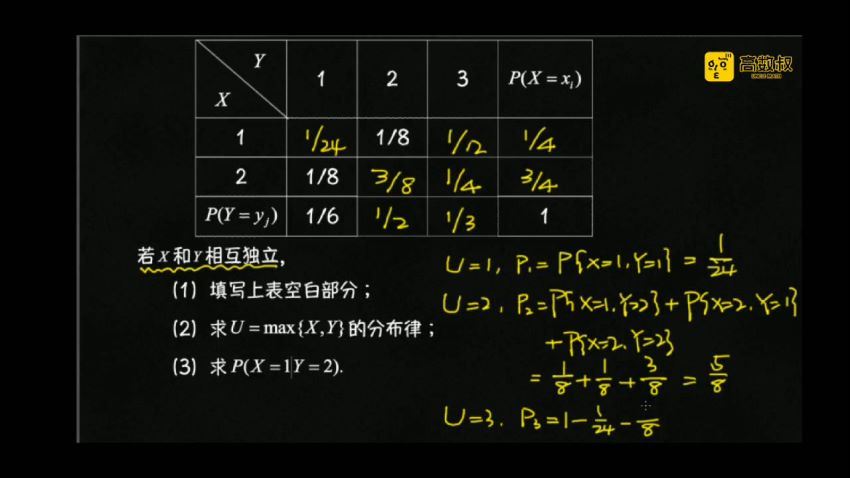 高数叔
UNCLE MATH
Y
X
1 2 3 P(X = xᵢ)
1 1/24 1/8 1/12 1/4
2 1/8 3/8 1/4 3/4
P(Y = yⱼ) 1/6 1/2 1/3 1
若X和Y相互独立,
(1) 填写上表空白部分；
(2) 求U = max{X,Y}的分布律；
(3) 求P(X = 1|Y = 2).
U=1, P₁= P{X=1,Y=1} = 1/24
U=2, P₂=P{X=1,Y=2} + P{X=2,Y=1}
+ P{X=2,Y=2}
= 1/8 + 1/8 + 3/8 = 5/8
U=3, P₃=1 - 1/24 - /8